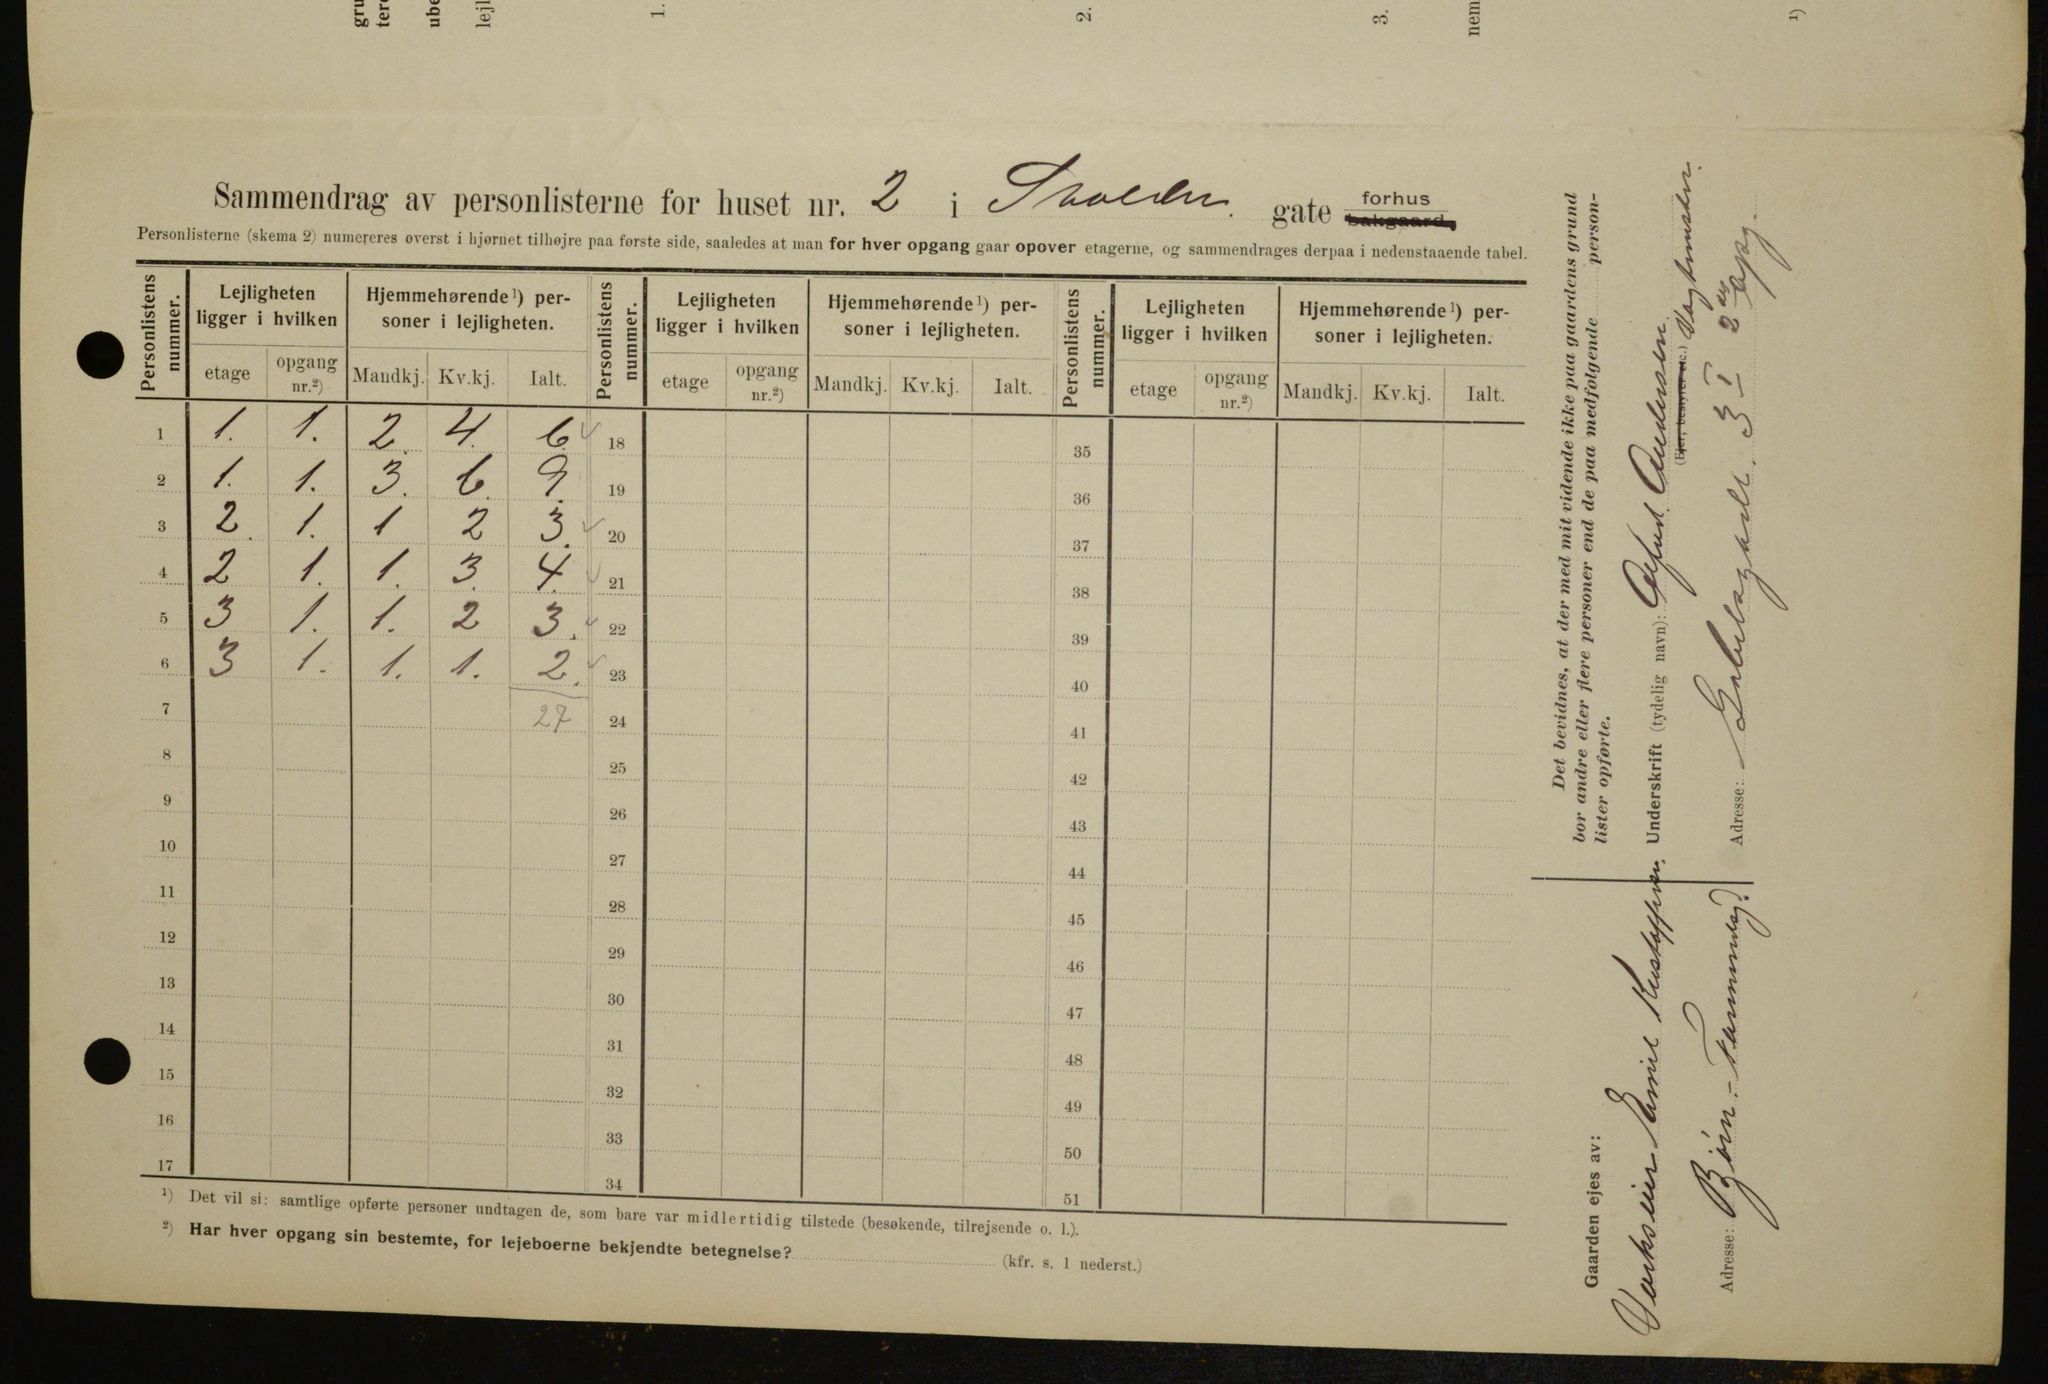 gru
tere
ube
lejl
1.
2.
3.
nem
1)
Sammendrag av personlisterne for huset nr. 2 i gate forhus bakgaard.
Personlisterne (skema 2) numereres øverst i hjørnet tilhøjre paa første side, saaledes at man for hver opgang gaar opover etagerne, og sammendrages derpaa i nedenstaaende tabel.
Personlistens nummer. Lejligheten ligger i hvilken Hjemmehørende¹) personer i lejligheten. Personlistens nummer. Lejligheten ligger i hvilken Hjemmehørende¹) personer i lejligheten. Personlistens nummer. Lejligheten ligger i hvilken Hjemmehørende¹) personer i lejligheten.
etage opgang nr.²) Mandkj. Kv.kj. Ialt. etage opgang nr.²) Mandkj. Kv.kj. Ialt. etage opgang nr.²) Mandkj. Kv.kj. Ialt.
1 1. 1. 2. 4. 6. 18 35
2 1. 1. 3. 6. 9. 19 36
3 2. 1. 1 2 3. 20 37
4 2 1. 1. 3. 4. 21 38
5 3 1. 1. 2 3. 22 39
6 3 1. 1. 1. 2. 23 40
7 27 24 41
8 25 42
9 26 43
10 27 44
11 28 45
12 29 46
13 30 47
14 31 48
15 32 49
16 33 50
17 34 51
¹) Det vil si: samtlige opførte personer undtagen de, som bare var midlertidig tilstede (besøkende, tilrejsende o. l.).
²) Har hver opgang sin bestemte, for lejeboerne bekjendte betegnelse? (kfr. s. 1 nederst.)
Gaarden ejes av:
Emil
Adresse: Bjørn-
Det bevidnes, at der med mit vidende ikke paa gaardens grund
bor andre eller flere personer end de paa medfølgende person-
lister opførte.
Underskrift (tydelig navn): Alfred Andersen.
(Ejer, bestyrer etc.) Vagtmester.
Adresse: Gabelsgade. 3 I 2 opg.